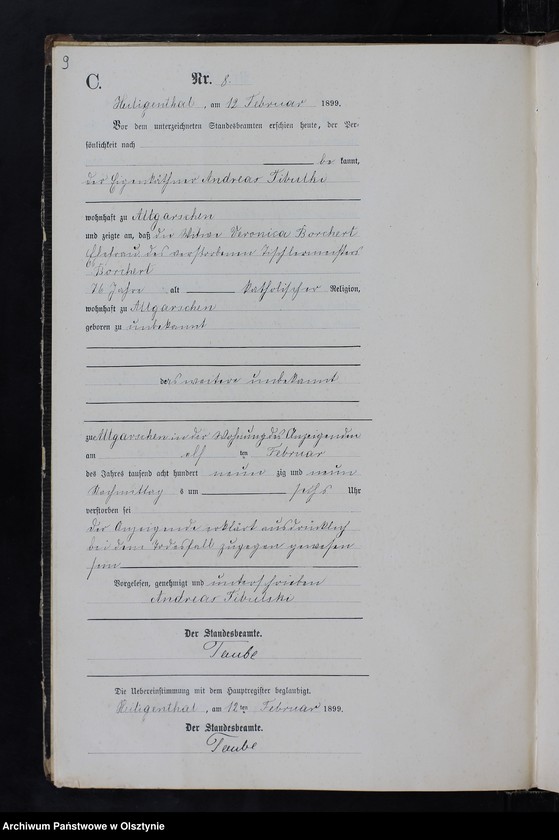 9
C.
Nr. 8.
Heiligenthal, am 12 Februar 1899.
Vor dem unterzeichneten Standesbeamten erschien heute, der Per-
sönlichkeit nach
be kannt,
der Eigenkäthner Andreas
wohnhaft zu Altgarschen
und zeigte an, daß die Witwe Veronica Borchert
Ehefrau des verstorbenen Tischlermeisters
Borchert
76 Jahre alt katholischer Religion,
wohnhaft zu Altgarschen
geboren zu unbekannt
das weitere unbekannt
zu Altgarschen in der Wohnung des Anzeigenden
am elf ten Februar
des Jahres tausend acht hundert neun zig und neun
Nachmittag s um sechs Uhr
verstorben sei
Der Anzeigende erklärt ausdrücklich
bei dem Todesfall zugegen gewesen
sein
Vorgelesen, genehmigt und unterschrieben
Andreas
Der Standesbeamte.
Taube
Die Uebereinstimmung mit dem Hauptregister beglaubigt.
Heiligenthal, am 12 ten Februar 1899.
Der Standesbeamte.
Taube
Archiwum Państwowe w Olsztynie